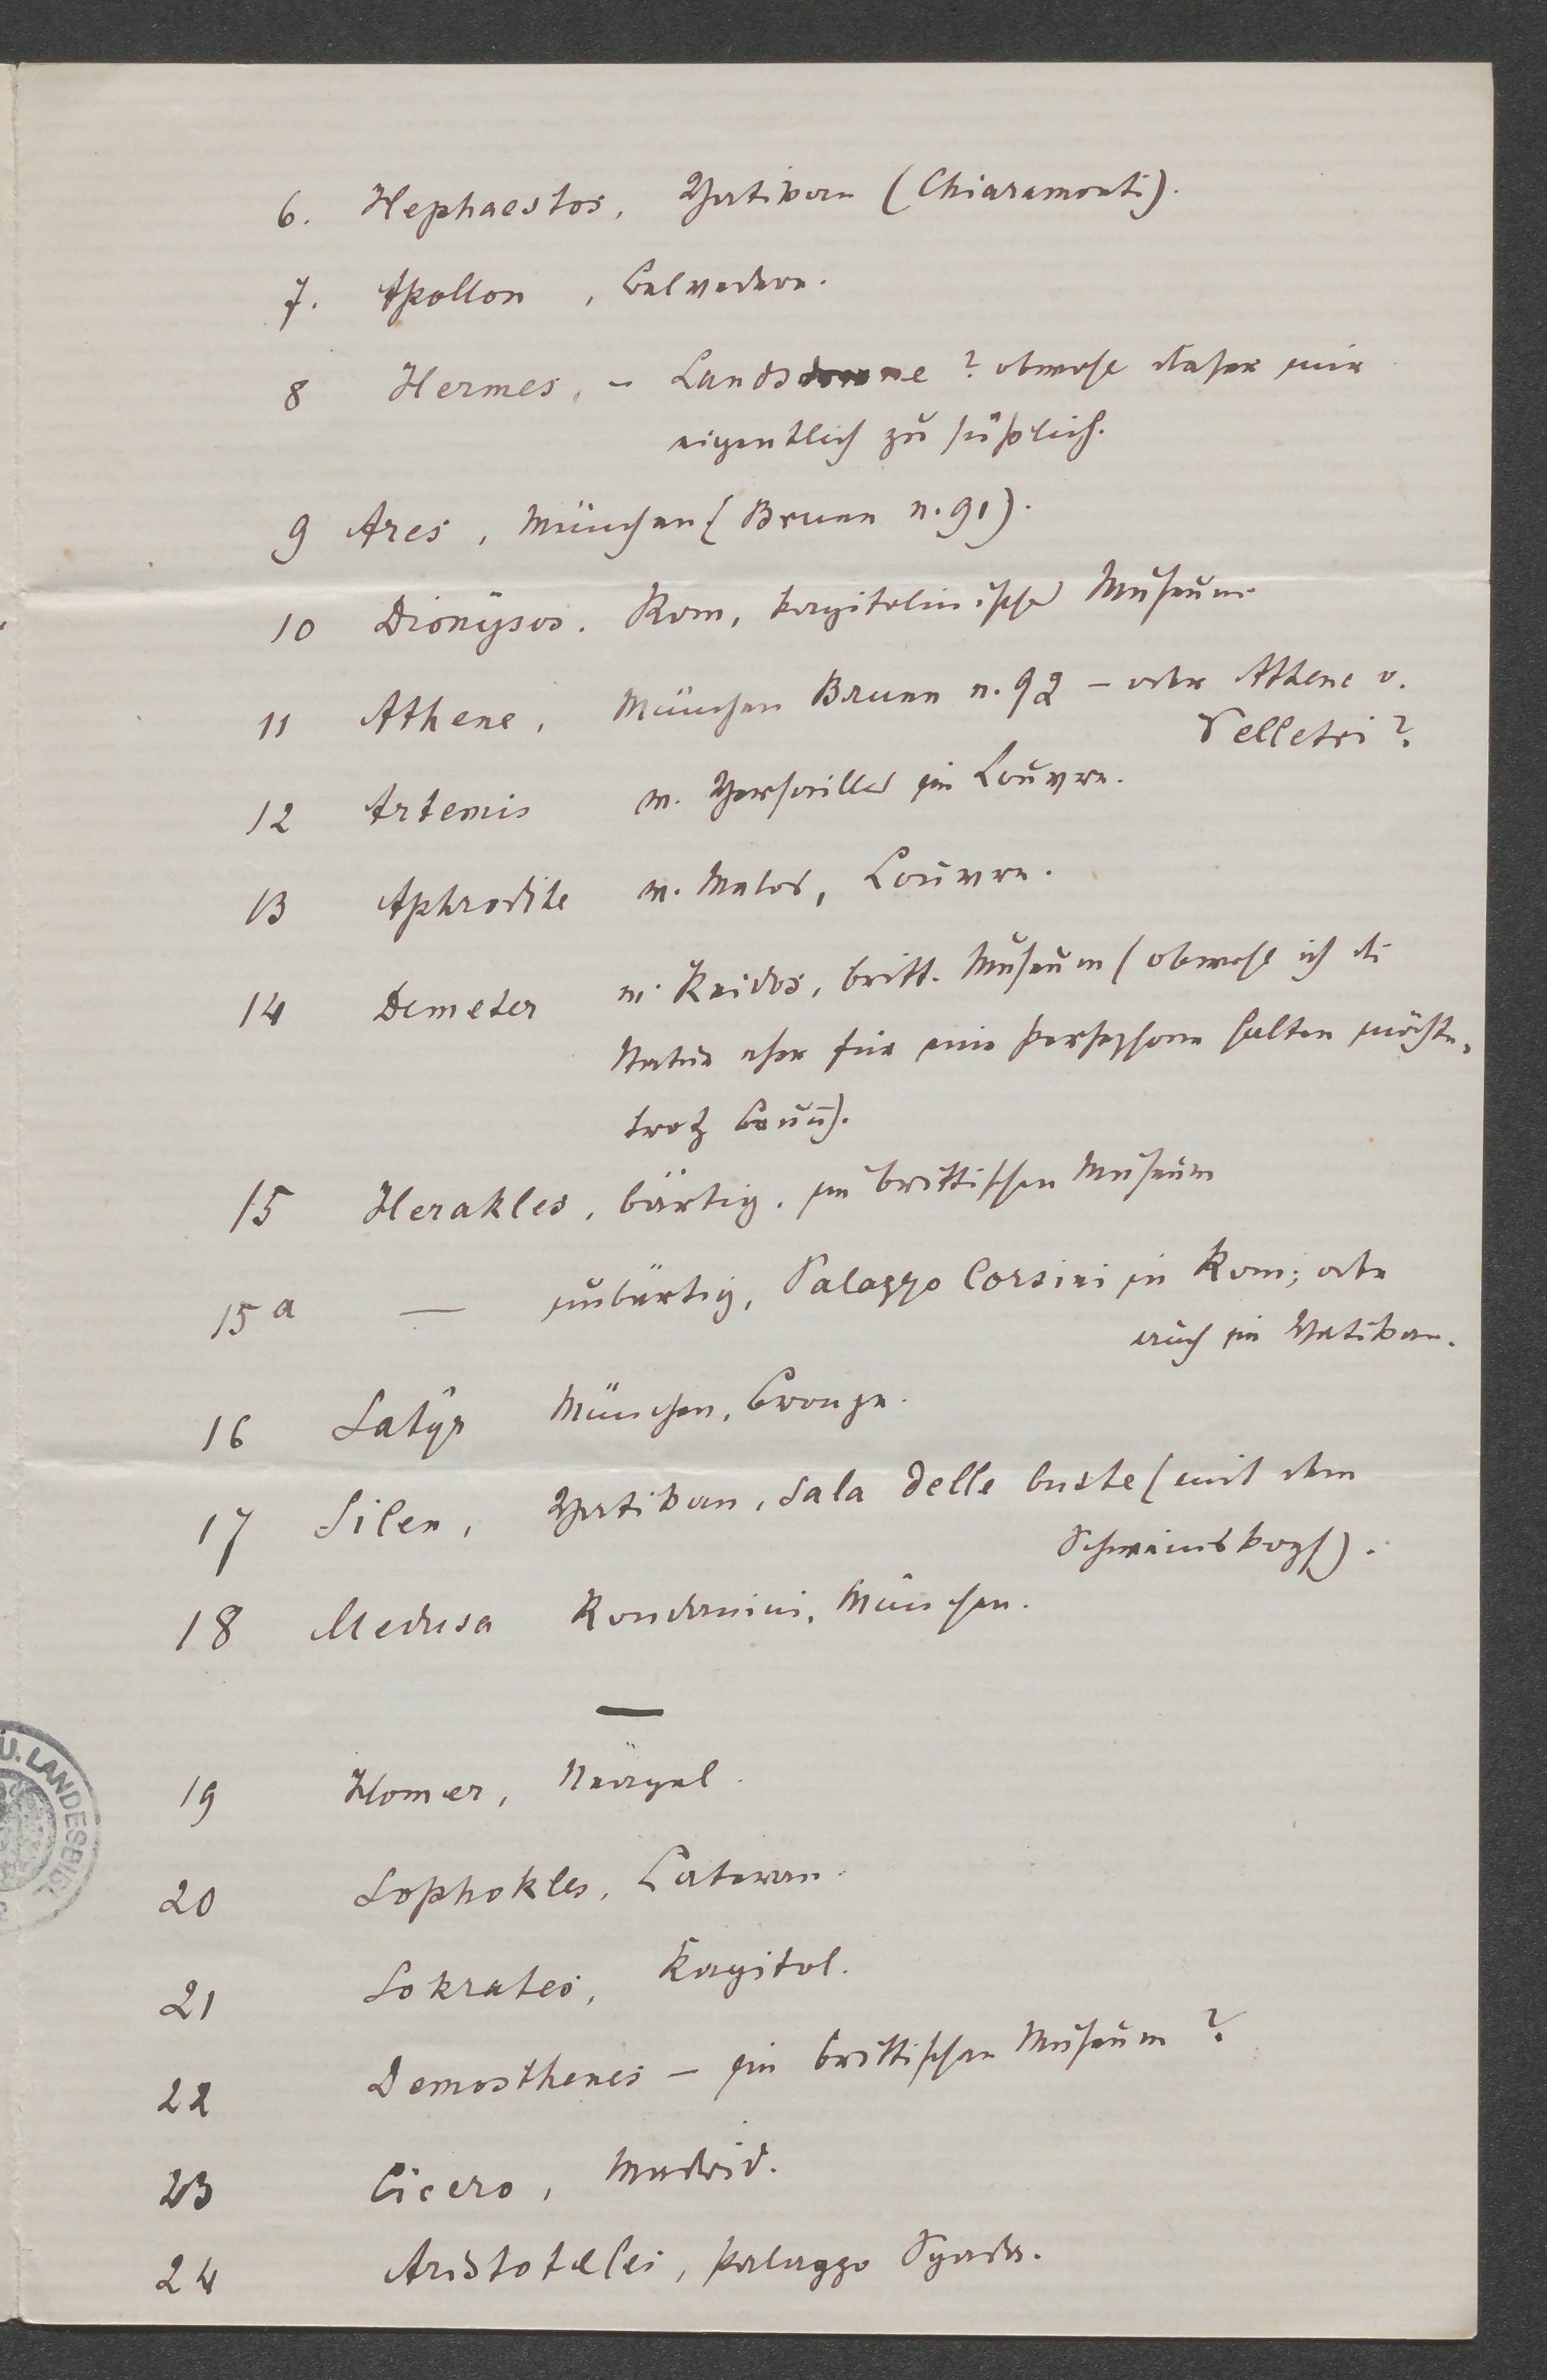 6. Hephaestos, Vatikan (Chiaramonti).
7. Apollon, Belvedere.
8 Hermes, – Landsdowne? obwohl dieser mir
eigentlich zu süßlich.
9 Ares, München (Brunn n. 91).
10 Dionysos. Rom, kapitolinisches Museum
11 Athene, München Brunn n. 92 – oder Athene v.
Velletri?
12 Artemis v. Versailles im Louvre.
13 Aphrodite v. Melos, Louvre.
14 Demeter v. Knidos, britt. Museum (obwohl ich die
Statue eher für eine Persephone halten möchte,
trotz Brunn).
15 Herakles, bärtig, im brittischen Museum
15a — unbärtig, Palazzo Corsini in Rom; oder
auch im Vatikan.
16 Satyr München, Bronze.
17 Silen, Vatikan, Sala delle buste (mit dem
Schweinskopf).
18 Medusa Rondanini, München.
—
19 Homer, Neapel.
20 Sophokles, Lateran.
21 Sokrates, Kapitol.
22 Demosthenes – im brittischen Museum?
23 Cicero, Madrid.
24 Aristoteles, Palazzo Spada.
U. LANDESBIBL